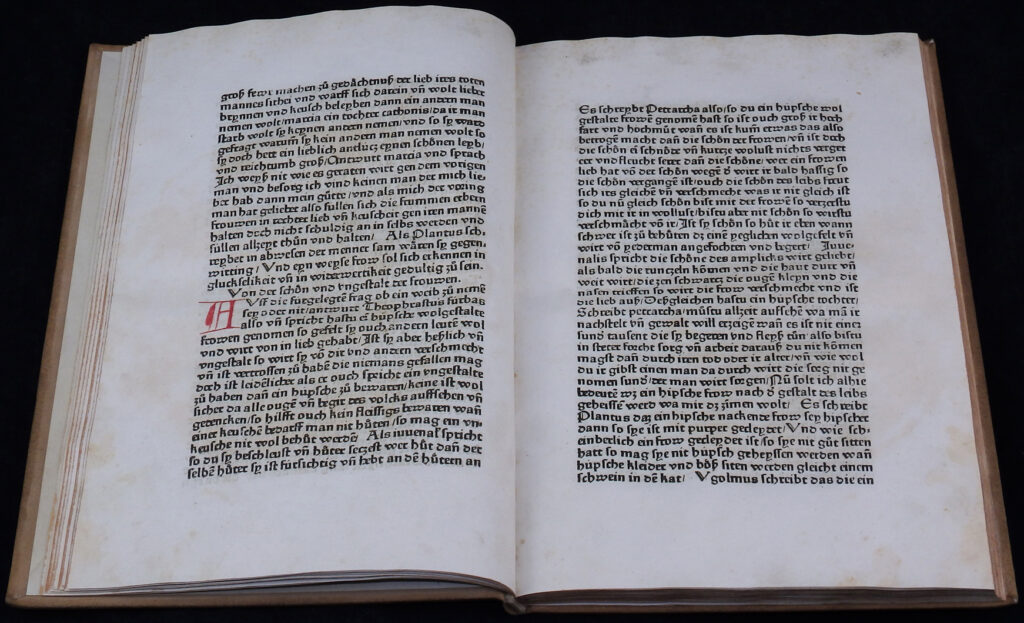 groß fewr machen zů gedåchtnuß der lieb ires toten
mannes sithei vnd warff sich darein vñ wolt lieber
brynnen vnd keusch beleyben dann ein andern man
nemen wolt/marcia ein tochter cathonis/da ir man
starb wolt sy keynen andern nemen/vnd so sy ward
gefragt warum̃ sy kein andern man nemen wolt so
sy doch hett ein lieblich antlucz eynen schönen leyb/
vnd reichtumb groß/Antwurt marcia vnd sprach
Ich weyß nit wie es geraten wirt gen dem vorigen
man vnd besorg ich vind keinen man der mich lie⸗
ber hab dann mein gůter/vnd als mich der voring
man hat geliebet also süllen sich die frummen erbern
frouwen in rechter lieb vñ keuscheit gen iren mannẽ
halten doch nicht schuldig an in selbs werden vnd
süllen allzeyt thůn vnd halten/ Als Plantus sch⸗
reybet in abwesen der menner sam wåren sy gegen⸗
wirting/ Vnd eyn weyse frow sol sich erkennen in
glückselikeit vñ in widerwertikeit gedultig zů sein.
Von der schön vnd vngestalt der frouwen.
AVff die fürgelegte frag ob ein weib zů nemẽ
sey oder nit/antwurt Theophrastus fürbas
also vñ spricht hastu eĩ hüpsche wolgestalte
frowen genomen so gefelt sy ouch andern leutẽ wol
vnd wirt von in lieb gehabt/Ist sy aber heßlich vñ
vngestalt so wirt sy vö dir vnd andern verschmecht
vñ ist verdrossen zů habẽ die niemans gefallen mag
doch ist leidẽlicher als er ouch spricht ein vngestalte
zů haben dañ ein hüpsche zů bewaren/keine ist wol
sicher da alle ougẽ vñ begir des volcks aufsehen vñ
gedencken/so hilfft ouch kein fleissigs bewaren wañ
einer keuschẽ bedarff man nit hüten/so mag ein vn⸗
keusche nit wol behůt werdẽ Als iuuenal spricht
so du sy beschleust vñ hüter seczest wer hüt dañ der
selbẽ hůter sy ist fürsichtig vñ hebt an dẽ hůtern an
Es schreybt Petrarcha also/so du ein hüpsche wol
gestalte frowẽ genomẽ hast so ist ouch groß ir hoch
fart vnd hochmůt wañ es ist kum̃ etwas das also
betrogẽ macht dañ die schön der frowẽ/vñ ist doch
die schön eĩ schnöde vñ kurcze wollust nichts verget
eer vnd fleucht seter dañ die schöne/wer ein frowen
lieb hat võ der schön wegẽ d̾ wirt ir bald hassig so
die schön vergangẽ ist/ouch die schön des leibs freut
sich irs gleichẽ vñ verschmecht was ir nit gleich ist
so du nů gleich schön bist mit der frowẽ so verzerstu
dich mit ir in wollust/bistu aber nit schön so wirstu
verschmåcht võ ir/Ist sy schön so hüt ir eben wann
schwer ist zů behütẽn dz einẽ yeglichen wolgefelt vñ
wirt võ yederman angefochten vnd begert/ Iuue⸗
nalis spricht die schöne des amplicks wirt geliebt/
als bald die runczeln kömen vnd die haut dürr vñ
weit wirt/die zen schwarcz die ougẽ kleyn vnd die
nåsen trieffen so wirt die frow verschmecht vnd ist
die lieb auß/Deßgleichen hastu ein hüpsche tochter/
Schreibt petrarcha/můstu allzeit aufsehẽ wa mã ir
nachstelt vñ gewalt will erzeigẽ wañ es ist nit einer
sund̾ tausent die sy begeren vnd fleyß tůn/also bistu
in steter forcht sorg vñ arbeit daraus du nit kömen
magst dañ durch iren tod oder ir alter/vñ wie wol
du ir gibst einen man da durch wirt die sorg nit ge
nomen sund̾/der man wirt sorgen/Nů solt ich alhie
bedeutẽ wz ein hipsche frow nach d̾ gestalt des leibs
geheissẽ werd wa mit dz zimen wolt/ Es schreibt
Plantus daz ein hipsche nackende frow sey hipscher
dann so sye ist mit purper gecleydet/Vnd wie sch⸗
einberlich ein frow gecleydet ist/so sye nit gůt sitten
hatt so mag sye nit hüpsch geheyssen werden wañ
hüpsche kleider vnd böß siten werden gleicht einem
schwein in dẽ kat/ Vgolinus schreibt das die ein